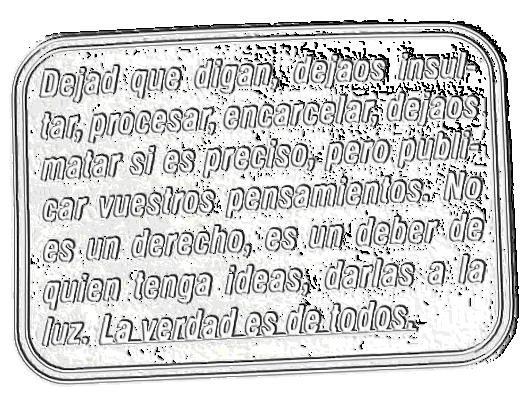 Dejad que digan, dejaos insul-
tar, procesar, encarcelar, dejaos
matar si es preciso, pero publi-
car vuestros pensamientos. No
es un derecho, es un deber de
quien tenga ideas, darlas a la
luz. La verdad es de todos.